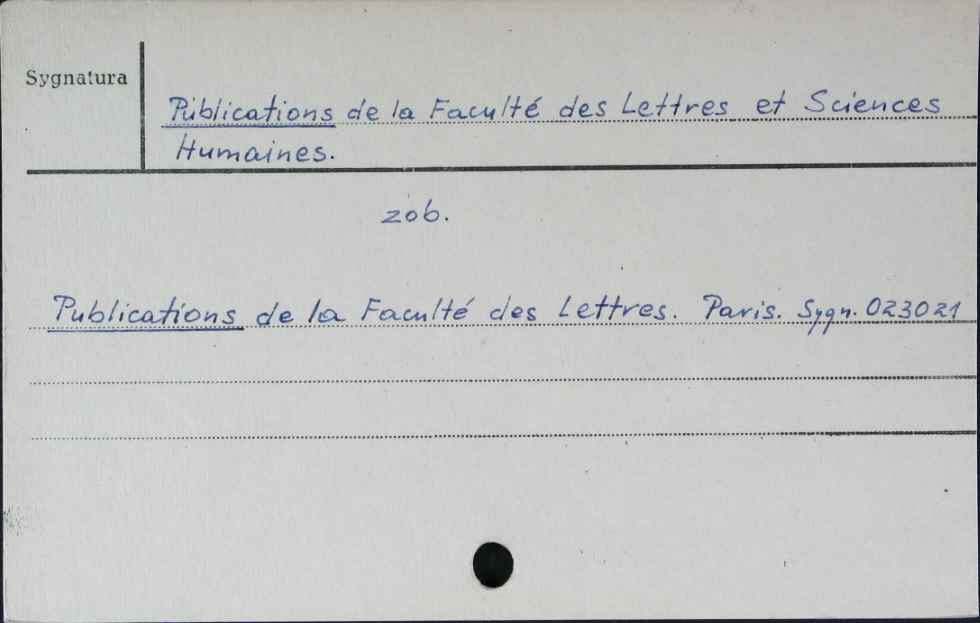 Sygnatura
Publications de la Faculté des Lettres et Sciences
Humaines.
zob.
Publications de la Faculté des Lettres. Paris. Sygn. 023021